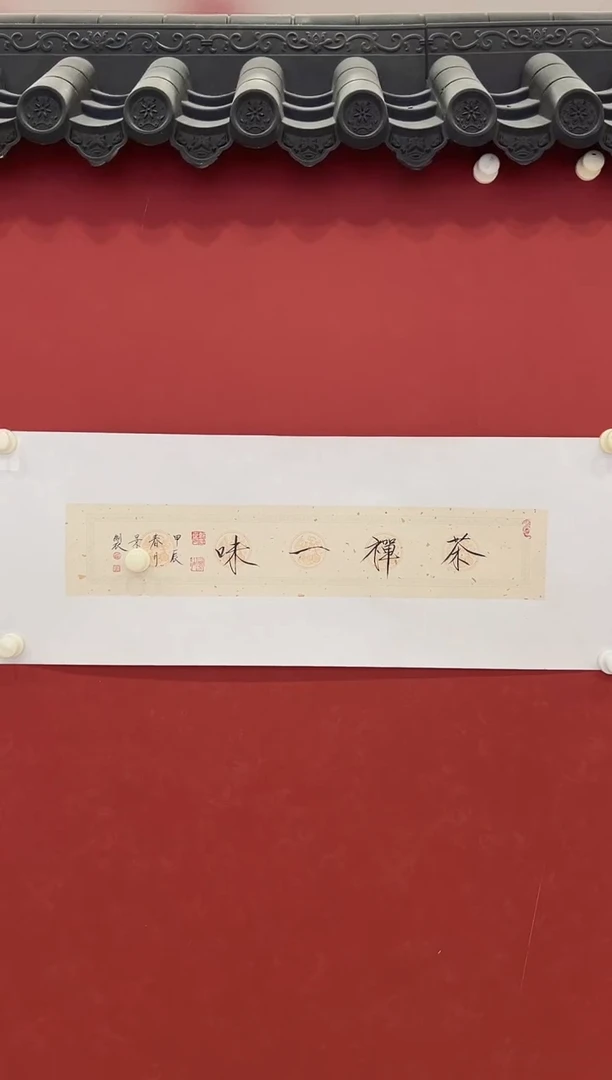 茶禪一味
甲辰
春月
製